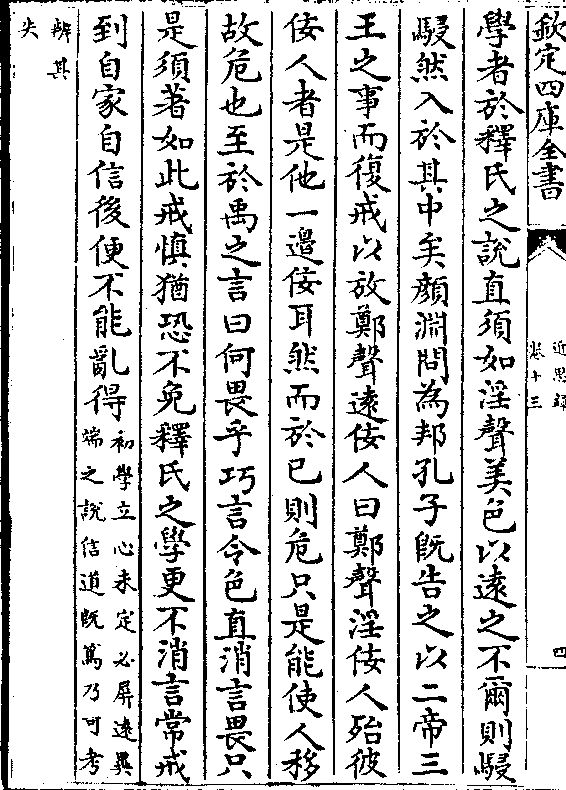 欽定四庫全書
近思錄
卷十三
四
學者於釋氏之說直須如淫聲美色以遠之不爾則駸
駸然入於其中矣顏淵問為邦孔子既告之以二帝三
王之事而復戒以放鄭聲遠佞人曰鄭聲淫佞人殆彼
佞人者是他一邉佞耳然而於已則危只是能使人移
故危也至於禹之言曰何畏乎巧言令色直消言畏只
是須著如此戒慎猶恐不免釋氏之學更不消言常戒
到自家自信後便不能亂得初學立心未定必屏逺異
端之說信道既篤乃可考
辨其
失